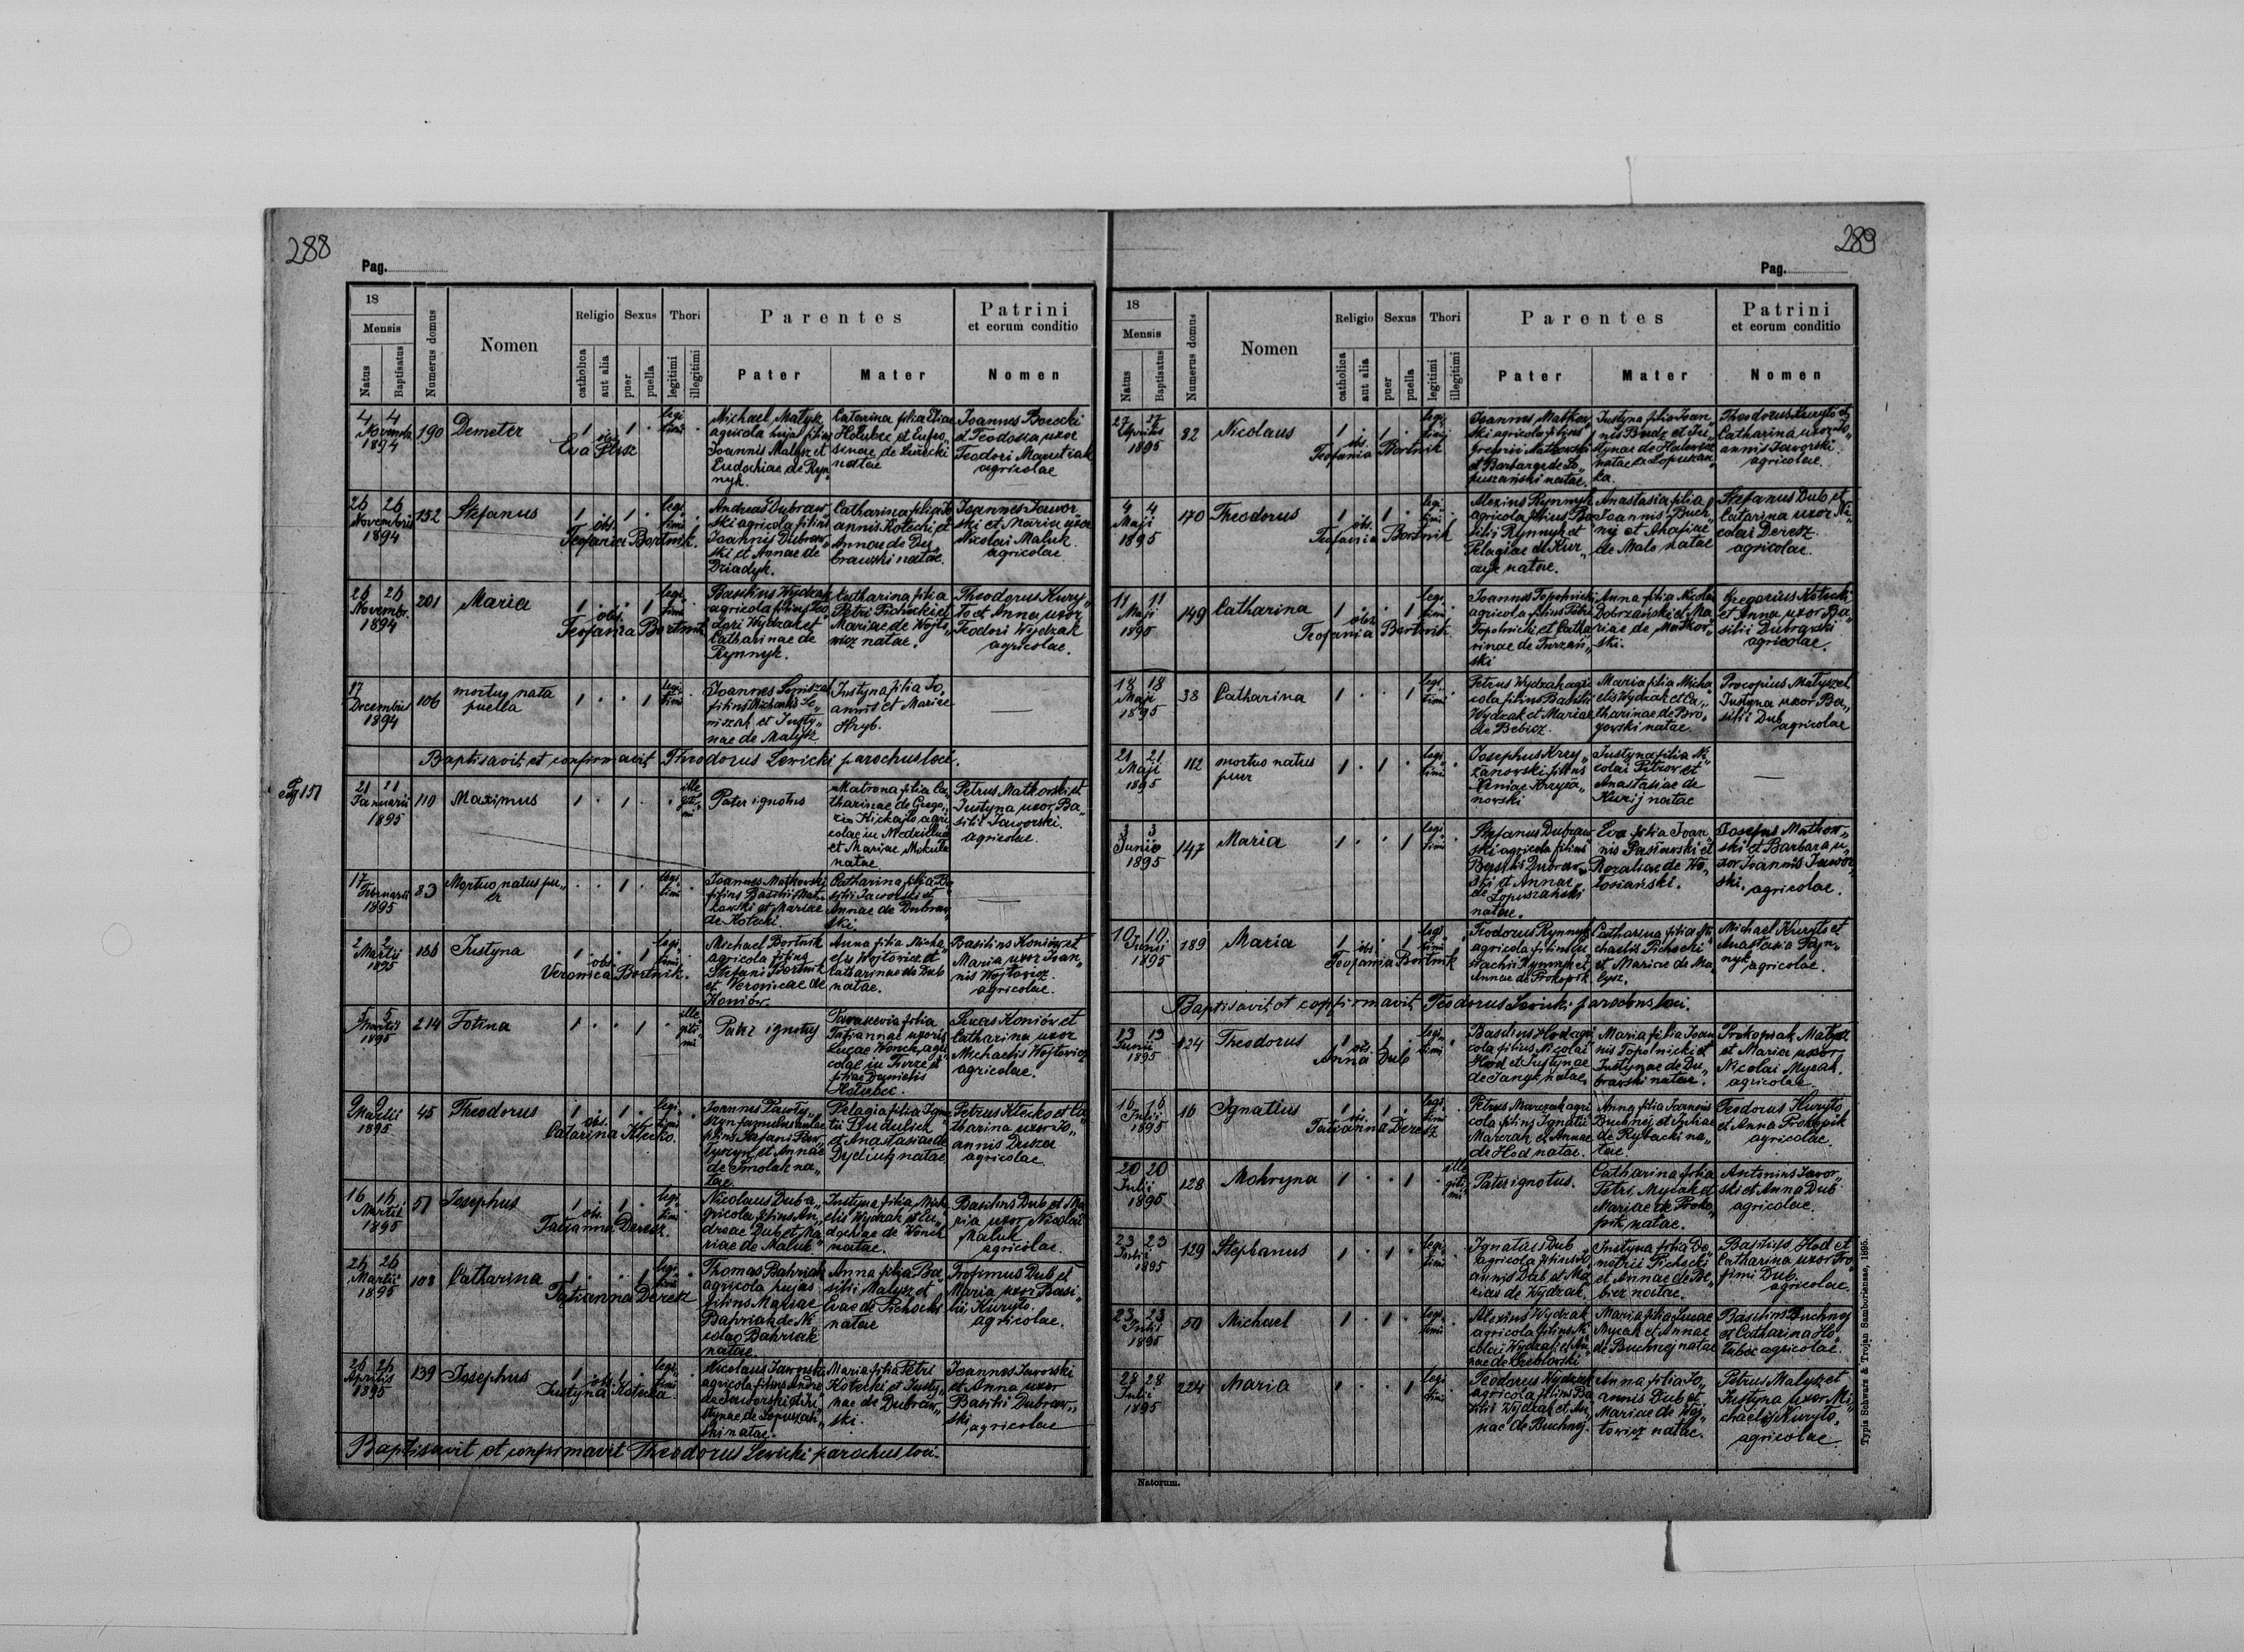 288
Pag.
18
Mensis
Natus
Baptisatus
Numerus domus
Nomen
Religio
catholica
aut alia
Sexus
puer
puella
Thori
legitimi
illegitimi
Parentes
Pater
Mater
Patrini
et eorum conditio
Nomen
4 4
Novemb.
1894
190
Demeter
1 . 1 .
legi
timi
obs.
Eva
Michael Małysz
agricola hujas filius
Joannis Małysz et
Eudochiae de Ryn„
nyk.
Catarina filia Eliae
Hołubec et Eufro„
sinae de Lurecki
natae
Joannes Borecki
et Teodosia uxor
Teodori Macutiak
agricolae
26 26
Novembris
1894
152
Stefanus
1 . 1 .
legi
timi
obs.
Teofania Bortnik.
Andreas Dubraw„
ski agricola filius
Joannis Dubraw„
ski et Annae de
Dziadyk.
Catharina filia Jo
annis Kotecki et
Annae de Du„
brawski natae.
Joannes Jawor„
ski et Maria uxor
Nicolai Maluk
agricolae
26 26
Novembr.
1894
201
Maria
1 . . 1
legi
timi
obs.
Teofania Bortnik
Basilius Wydzak
agricola filius Teo
dori Wydzak et
Catharinae de
Rynnyk.
Catharina filia
Petri Pichocki et
Mariae de Wojto„
wicz natae.
Theodorus Kury„
ło et Anna uxor
Teodori Wydzak
agricolae.
17
Decembris
1894
106
mortuo nata
puella
1 . . 1
legi
timi
Joannes Semiszak
filius Michaelis Se„
miszak et Justy„
nae de Małysz
Justyna filia Jo„
annis et Mariae
Hryb.
Baptisavit et confirmavit Theodorus Lewicki parochus loci.
Pg 151
21 21
Januarii
1895
110
Maximus
1 . 1 .
ille
giti
mi
Pater ignotus
Matrona filia Ca„
tharinae de Grego„
rio Kickajło agri
colae in Nedzielna
et Mariae Mikuła
natae
Petrus Matkowski et
Justyna uxor Ba„
silii Jaworski.
agricolae.
17
Februarii
1895
83
Mortuo natus pu„
er
. . 1 .
legi
timi
Joannes Matkowski
filius Basilii Mat„
kowski et Mariae
de Kotecki.
Catharina filia Ba
silii Jaworski et
Annae de Dubraw
ski.
2 2
Martii
1895
186
Justyna
1 . . 1
legi
timi
obs.
Veronica Bortnik.
Michael Bortnik
agricola filius
Stefani Bortnik
et Veronicae de
Koniów.
Anna filia Micha„
elis Wojtowicz et
Catharinae de Dub
natae.
Basilius Koniów et
Maria uxor Joan„
nis Wojtowicz.
agricolae.
5 5
Martii
1895
214
Fotina
1 . . 1
ille
giti
mi
Pater ignotus
Parascevia filia
Tatiannae uxoris
Lucae Wonek agri
colae in Turze et
filiae Danielis
Hołubec.
Lucas Koniów et
Catharina uxor
Michaelis Wojtowicz
agricolae.
9 9
Martii
1895
45
Theodorus
1 . 1 .
legi
timi
obs.
Catarina Klecko.
Joannes Pawły„
szyn famulus aulae
filius Stefani Paw„
łyszyn et Annae
de Smolak na„
tae.
Pelagia filia Igna
tii Dudulich
et Anastasiae de
Dydiuk natae
Petrus Klecko et Ca
tharina uxor Jo„
annis Duszar
agricolae.
16 16
Martii
1895
51
Josephus
1 . 1 .
legi
timi
obs.
Tatianna Deresz.
Nicolaus Dub a„
gricola filius An„
dreae Dub et Ma„
riae de Maluk
Justyna filia Mich
elis Wydzak et Eu„
dochiae de Wonek
natae.
Basilius Dub et Ma
ria uxor Nicolai
Maluk
agricolae.
26 26
Martii
1895
108
Catharina
1 . . 1
legi
timi
Tatianna Deresz
Thomas Bahriak
agricola hujas
filius Mariae
Bahriak de Ni
colao Bahriak
natae.
Anna filia Ba
silii Małysz et
Evae de Pichocki
natae
Trofimus Dub et
Maria uxor Basi„
lii Kuryło.
agricolae.
26 26
Aprilis
1895
139
Josephus
1 . 1 .
legi
timi
obs.
Justyna Kotecka
Nicolaus Jaworski
agricola filius Andre
ae Jaworski et Ju„
stynae de Łopuszań„
ski natae.
Maria filia Petri
Kotecki et Justy„
nae de Dubraw„
ski.
Joannes Jaworski
et Anna uxor
Basilii Dubraw„
ski
agricolae
Baptisavit et confirmavit Theodorus Lewicki parochus loci.
289
Pag.
18
Mensis
Natus
Baptisatus
Numerus domus
Nomen
Religio
catholica
aut alia
Sexus
puer
puella
Thori
legitimi
illegitimi
Parentes
Pater
Mater
Patrini
et eorum conditio
Nomen
27 27
Aprilis
1895
82
Nicolaus
1 . 1 .
legi
timi
obs.
Teofania Bortnik
Joannes Matkow„
ski agricola filius
Gregorii Matkowski
et Barbarae de Ło„
puszański natae.
Justyna filia Joan„
nis Budz et Ju„
stynae de
natae
Theodorus Kuryło et
Catharina uxor Jo„
annis Jaworski.
agricolae.
4 4
Maji
1895
170
Theodorus
1 . 1 .
legi
timi
obs.
Teofania Bortnik
Alexius Rynnyk
agricola filius Ba
silii Rynnyk et
Pelagiae de
natae.
Anastasia filia
Joannis Buch„
nij et Ahafiae
de Mało natae
Stefanus Dub et
Catarina uxor Ni„
colai Deresz.
agricolae.
11 11
Maji
1895
149
Catharina
1 . . 1
legi
timi
obs.
Teofania Bortnik
Joannes Topolnicki
agricola filius Petri
Topolnicki et Catha
rinae de Turzań„
ski
Anna filia Nicolai
Dobrzański et Ma„
riae de Matkow„
ski.
Gregorius Kotecki
et Anna uxor Ba„
silii Dubrawski
agricolae.
18 18
Maji
1895
38
Catharina
1 . . 1
legi
timi
Petrus Wydzak agri
cola filius Basilii
Wydzak et Mariae
de Bebiez.
Maria filia Micha„
elis Wydzak et Ca„
tharinae de Bro„
gowski natae
Procopius Małysz et
Justyna uxor Ba„
silii Dub
agricolae
21 21
Maji
1895
112
mortuo natus
puer
1 . 1 .
legi
timi
Josephus Krzy„
żanowski filius
Xeniae Krzyża„
nowski
Justyna filia Ni„
colai Petrow et
Anastasiae de
Kurij natae
3 3
Junii
1895
147
Maria
1 . . 1
legi
timi
Stefanus Dubraw
ski agricola filius
Basilii Dubraw„
ski et Annae
de Łopuszański
natae.
Eva filia Joan„
nis Pasławski et
Rozaliae de Wo„
łosiański.
Josephus Matkow„
ski et Barbara u„
xor Joannis Jawor„
ski.
agricolae.
10 10
Junii
1895
189
Maria
1 . . 1
legi
timi
obs.
Teofania Bortnik
Teodorus Rynnyk
agricola filius Eu
stachii Rynnyk et
Annae de Prokopik
Catharina filia Mi
chaelis Pichocki
et Mariae de Ma„
łysz.
Michael Kuryło et
Anastasia Ryn„
nyk
agricolae.
Baptisavit et confirmavit Teodorus Lewicki parochus loci.
13 13
Junii
1895
124
Theodorus
1 . 1 .
legi
timi
obs.
Anna Dub
Basilius Hod agri
cola filius Nicolai
Hod et Justynae
de Janyk natae.
Maria filia Joan
nis Topolnicki et
Justynae de Du„
brawski natae.
Prokopiah Małysz
et Maria uxor
Nicolai Mycak.
agricolae.
16 16
Julii
1895
16
Ignatius
1 . 1 .
legi
timi
obs.
Tatianna Deresz
Petrus Marczak agri
cola filius Ignatii
Marczak et Annae
de Hod natae.
Anna filia Joannis
Buchnij et Juliae
de Rybacki na„
tae.
Teodorus Kuryło
et Anna Prokopik
agricolae.
20 20
Julii
1895
128
Mokryna
1 . . 1
ille
giti
mi
Pater ignotus.
Catharina filia
Petri Mycak et
Mariae de Proko„
pik natae.
Antonius Jawor„
ski et Anna Dub
agricolae.
23 23
Julii
1895
129
Stephanus
1 . 1 .
legi
timi
Ignatius Dub
agricola filius Jo
annis Dub et Ma„
riae de Wydzak.
Justyna filia De„
metrii Pichocki
et Annae de Be„
biez natae.
Basilius Hod et
Catharina uxor Tro„
fimi Dub.
agricolae
23 23
Julii
1895
50
Michael
1 . 1 .
legi
timi
Alexius Wydzak
agricola filius Ni
colai Wydzak et An„
nae de
Maria filia Lucae
Mycak et Annae
de Buchnij natae
Basilius Buchnij
et Catharina Ho„
łubec agricolae.
28 28
Julii
1895
224
Maria
1 . . 1
legi
timi
Teodorus Wydzak
agricola filius Ba
silii Wydzak et An„
nae de Buchnij.
Anna filia Jo„
annis Dub et
Mariae de Woj„
towicz natae.
Petrus Małysz et
Justyna uxor Mi„
chaelis Kuryło.
agricolae
Natorum.
Typis Schwarz & Trojan Samboriensae, 1895.